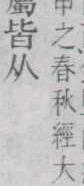 申之春秋經大
屬皆从